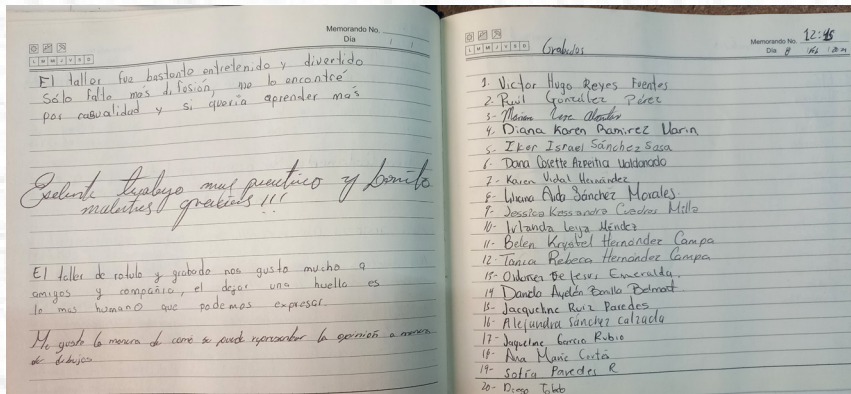 Memorando No.
Día / /
L M M J V S D
El taller fue bastante entretenido y divertido
Sólo falta más difusión, me lo encontré
por casualidad y si quería aprender más
Exelente trabajo muy practico y bonito
muchas gracias !!!
El taller de rotulo y grabado nos gusto mucho a
amigos y compañia, el dejar una huella es
lo mas humano que podemos expresar.
Me gusto la manera de como se puede representar la opinión a manera
de dibujos
Memorando No. 12:45
Día 8
L M M J V S D
Grabados
1. Victor Hugo Reyes Fuentes
2. Raul González Pérez
3-
4. Diana Karen Ramirez Marin
5. Iker Israel Sánchez Sosa
6. Dana Cosette Azpeitia Maldonado
7- Karen Vidal Hernández
8- Liliana Aida Sánchez Morales.
9- Jessica Kassandra Cuadros Milla
10- Leyja Méndez
11- Belen Krystel Hernández Campa
12. Tanca Rebeca Hernández Campa
13- De Jesus Esmeralda.
14 Ayelén Bonilla
15- Jacqueline Ruiz Paredes
16- Alejandra Sánchez calzada
17- Jaqueline Garcia Rubio
18- Ana Maria Cortés
19- Sofia Paredes R
20- Diego